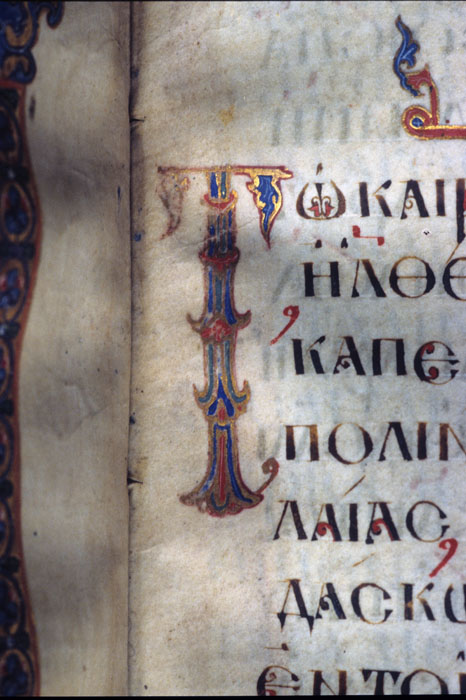 Τῼ ΚΑΙΡ
ΗΛΘΕ
ΚΑΠΕ
ΠΟΛΙΝ
ΛΑΙΑϹ
ΔΑϹΚΩ
ΕΝ ΤΟΙ